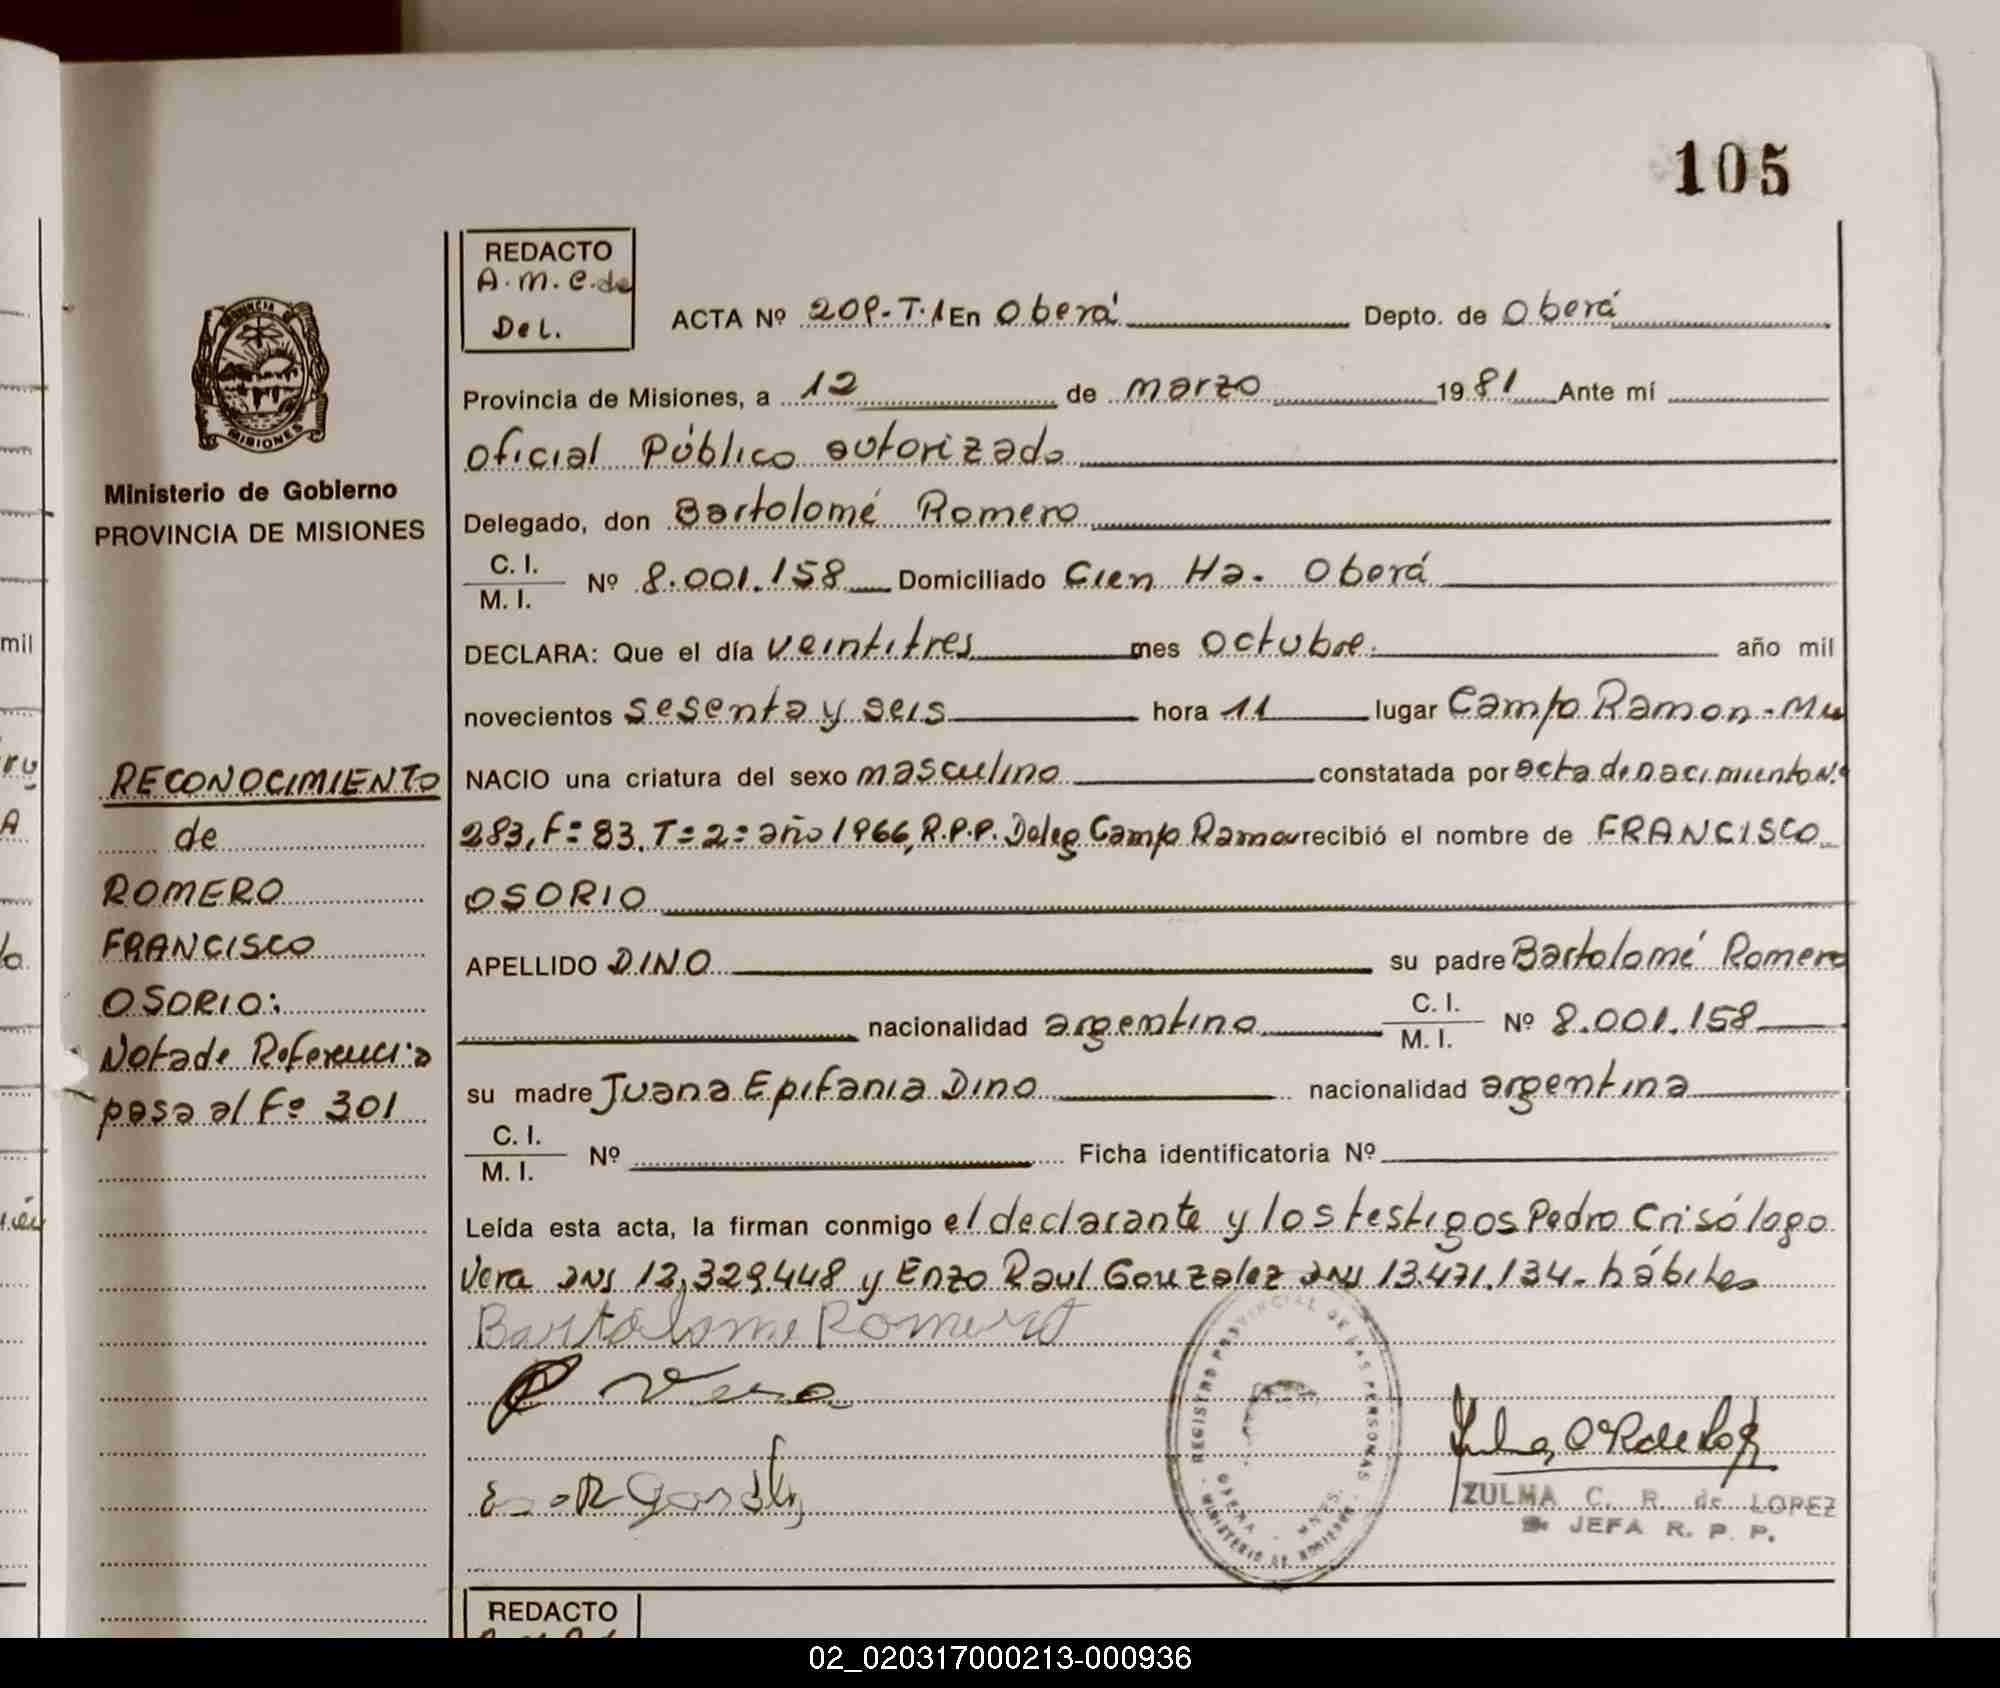 105
REDACTO
A.M.C. de
Del.
ACTA Nº 209-T.1 En Oberá Depto. de Oberá
Provincia de Misiones, a 12 de marzo 1981 Ante mí
Oficial Público autorizado
Delegado, don Bartolomé Romero
C. I.
M. I. Nº 8.001.158 Domiciliado Cien Ha. Oberá
DECLARA: Que el día veintitres mes octubre. año mil
novecientos sesenta y seis hora 11 lugar Campo Ramon-Mu
NACIO una criatura del sexo masculino constatada por acta de nacimiento Nº
283, Fº 83, Tº 2º año 1966, R.P.P. Deleg Campo Ramon recibió el nombre de FRANCISCO
OSORIO
APELLIDO DINO su padre Bartolomé Romero
nacionalidad argentino C. I.
M. I. Nº 8.001.158
su madre Juana Epifania Dino nacionalidad argentina
C. I.
M. I. Nº Ficha identificatoria Nº
Leída esta acta, la firman conmigo el declarante y los testigos Pedro Crisólogo
Vera DNI 12,329.448 y Enzo Raul Gonzalez DNI 13.471.134- hábiles
Bartolome Romero
Vera
REGISTRO PROVINCIAL DE LAS PERSONAS
OBERA - MNES.
MINISTERIO DE GOBIERNO
ZULMA C. R. de LOPEZ
JEFA R. P. P.
REDACTO
PROVINCIA DE
MISIONES
Ministerio de Gobierno
PROVINCIA DE MISIONES
RECONOCIMIENTO
de
ROMERO
FRANCISCO
OSORIO:
Nota de Referencia
pasa al Fº 301
mil
02_020317000213-000936